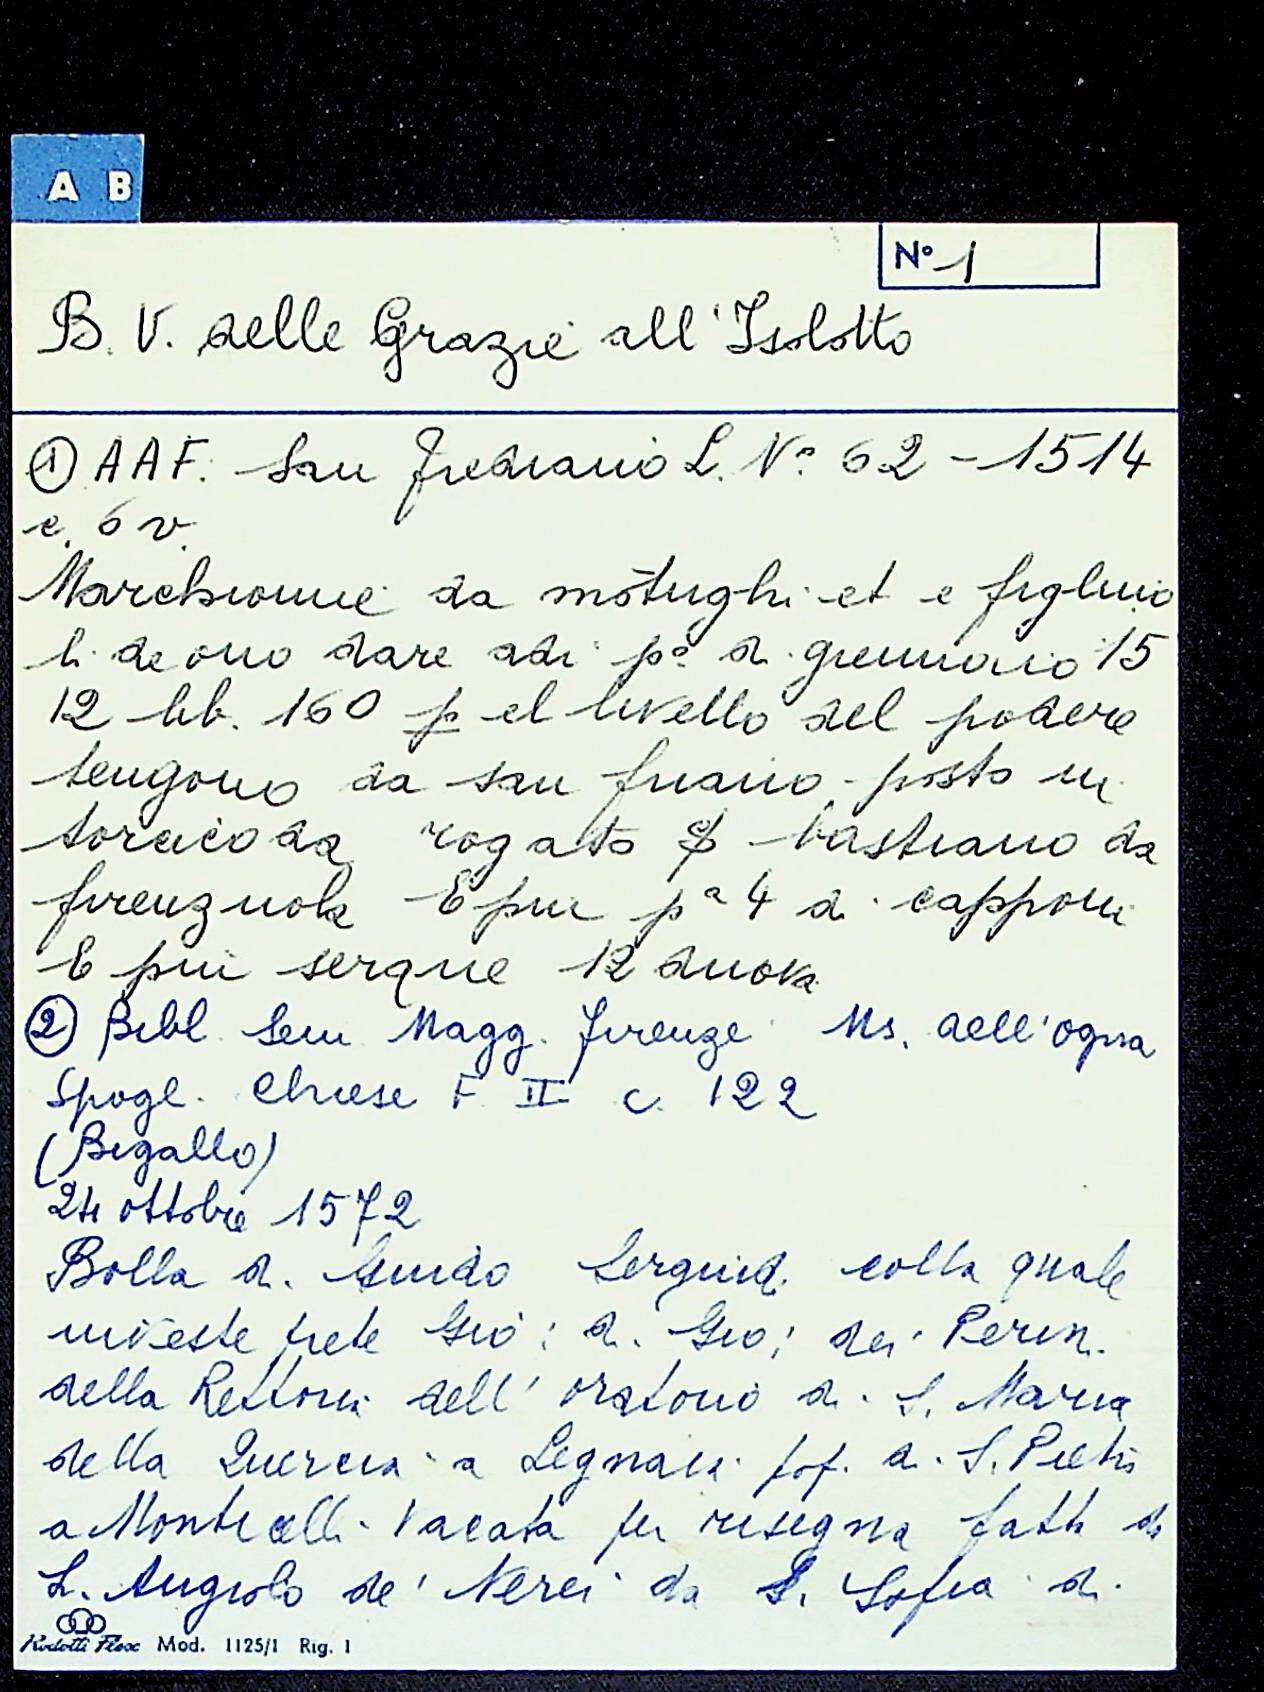 A B
N° 1
B. V. delle Grazie all'Isolotto
① AAF. San Frediano L. N° 62 - 1514
c. 6 v.
Marchionne da mōtughi et e figluio
li deono dare adi p° di giennaio 15
12 lib. 160 p el livello del podere
tengono da san friano posto in
torcicoda rogato bastiano da
firenzuola E piu pª 4 di capponi
E piu serque 12 duova
② Bibl. Sem Magg. Firenze Ms. dell'ogna
Spogl. Chiese F. II c. 122
(Bigallo)
24 ottobre 1572
Bolla di Guido Serguidi colla quale
investe prete Gio: di Gio: dei Perini
della Rettoria dell'oratorio di S. Maria
della Quercia a Legnaia pop. di S. Pietro
a Monticelli. Vacata per risegna fatta da
S. Angiolo de' Nerei da S. Sofia di
Rodotti Flex Mod. 1125/1 Rig. 1